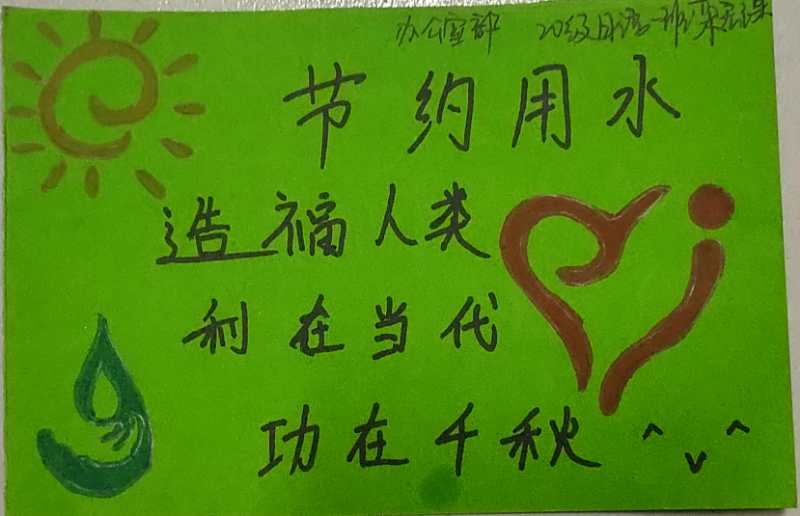 办公室部 20级日语一班
节约用水
造福人类
利在当代
功在千秋 ^v^